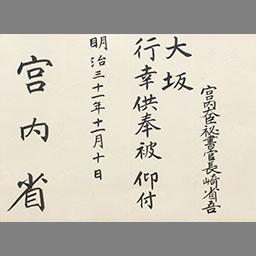 宮内大臣秘書官長崎省吾
大坂
行幸供奉被仰付
明治三十一年十一月十日
宮内省